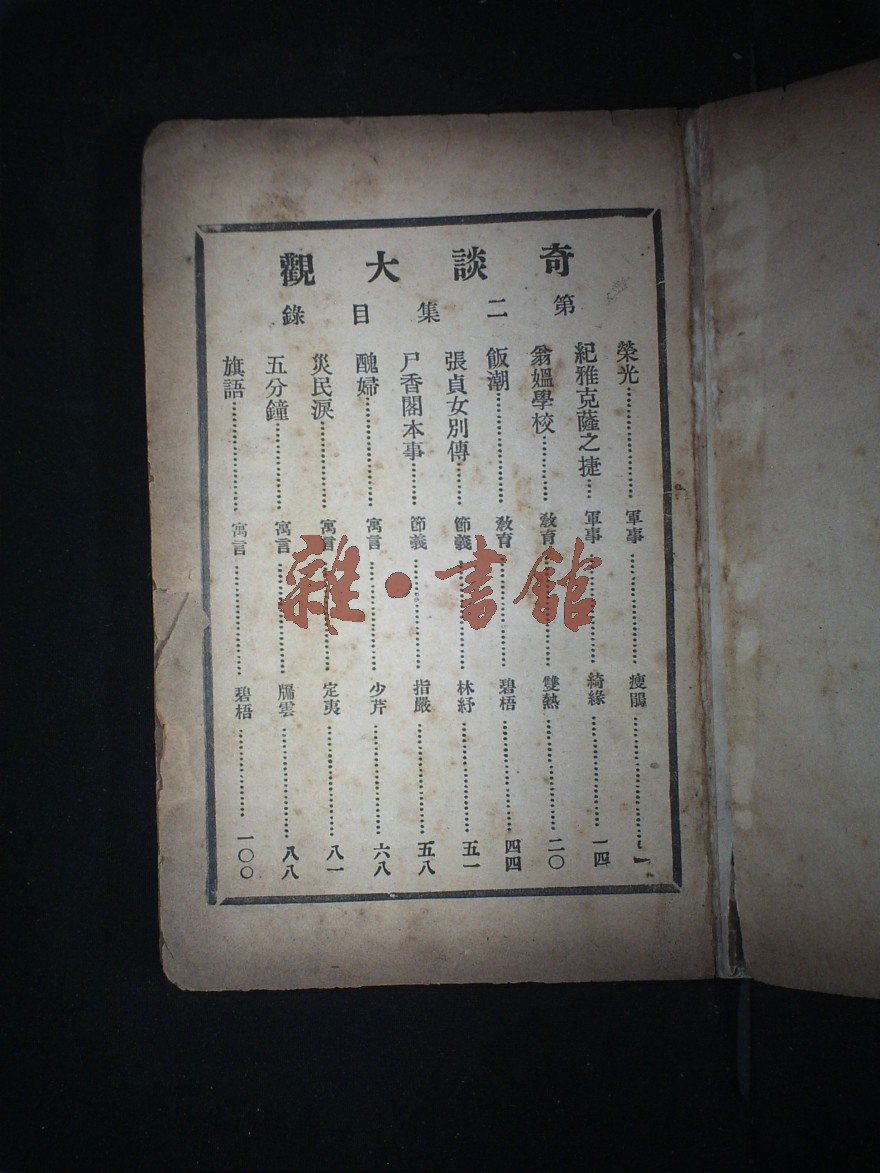 奇談大觀
第二集目錄
榮光………………軍事………………瘦鵑………………一
紀雅克薩之捷……軍事………………綺緣………………一四
翁媼學校…………教育………………雙熱………………二〇
飯潮………………教育………………碧梧………………四四
張貞女別傳………節義………………林紓………………五一
尸香閣本事………節義………………指嚴………………五八
醜婦………………寓言………………少芹………………六八
災民淚……………寓言………………定夷………………八一
五分鐘……………寓言………………牖雲………………八八
旗語………………寓言………………碧梧………………一〇〇
雜·書館